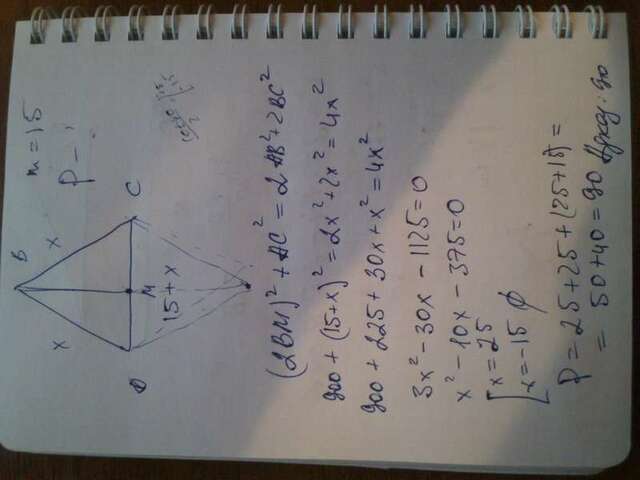 m = 15
P - ?
B
x
x
C
M
15 + x
(2BM)² + AC² = 2AB² + 2BC²
900 + (15+x)² = 2x² + 2x² = 4x²
900 + 225 + 30x + x² = 4x²
3x² - 30x - 1125 = 0
x² - 10x - 375 = 0
[x = 25
x = -15 ∅
P = 25 + 25 + (25 + 15) =
= 50 + 40 = 90 : 90